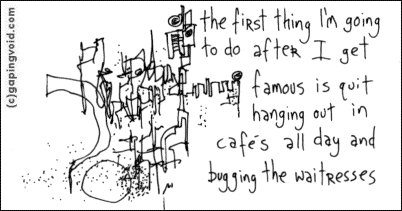 (c)gapingvoid.com
the first thing I'm going
to do after I get
famous is quit
hanging out in
cafés all day and
bugging the waitresses